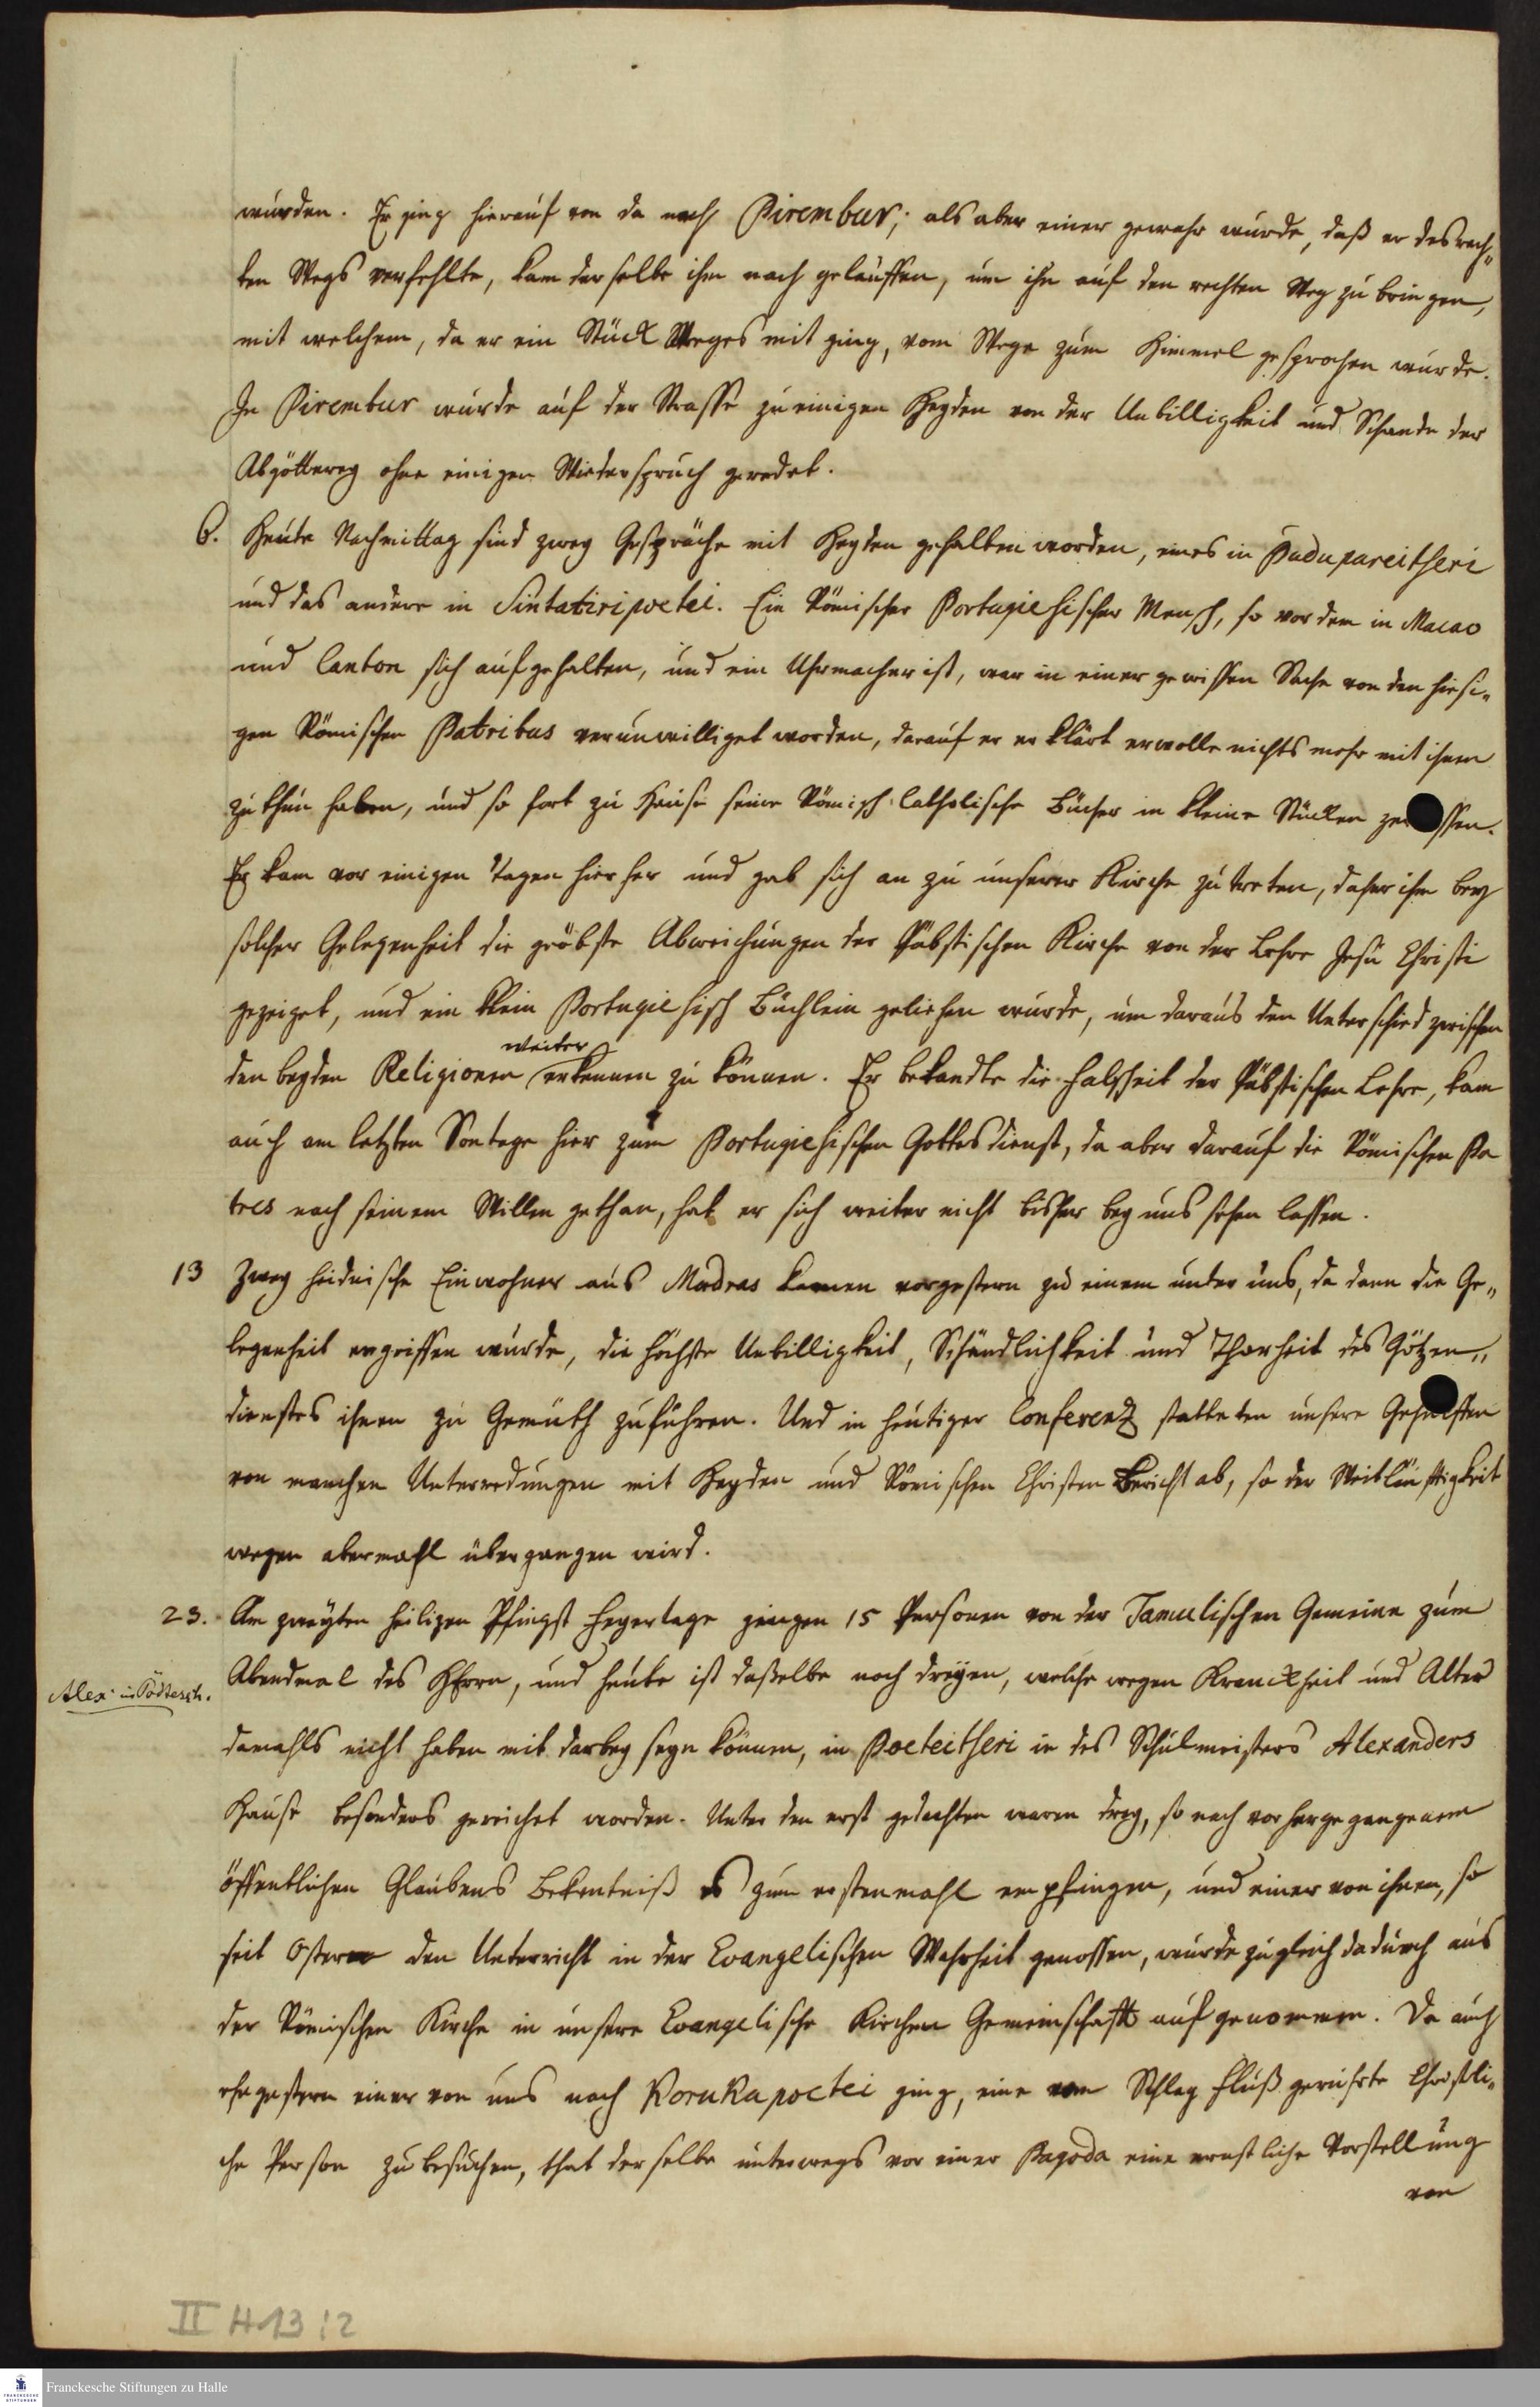 wurden. Er ging hierauf von da nach Pirembur; als aber einer gewahr wurde, daß er des rech„
ten Wegs verfehlte, kam derselbe ihm nach geläuffen, um ihn auf den rechten Weg zu bringen,
mit welchem, da er ein Stück Weges mit ging, vom Wege zum Himmel gesprochen wurde.
In Pirembur wurde auf der Strasse zu einigen Heyden von der Unbilligkeit und Schande der
Abgötterey ohne einigen Wiederspruch geredet.
6. Heute Nachmittag sind zwey Gespräche mit Heyden gehalten worden, eines in Pudupareitseri
und das andere in Sintatiripoetei. Ein Römischer Portugiehsischer Mensch, so vor dem in Macao
und Canton sich aufgehalten, und ein Uhrmacher ist, war in einer gewissen Sache von den hiesi„
gen Römischen Patribus verunwilliget worden, darauf er erklärt er wolle nichts mehr mit ihnen
zu thun haben, und so fort zu Hause seine Römisch-Catholische Bücher in kleine Stücken zerissen.
Er kam vor einigen Tagen hierher und gab sich an zu unserer Kirche zu treten, daher ihm bey
solcher Gelegenheit die gröbste Abweichungen der Päbstischen Kirche von der Lehre Jesu Christi
gezeiget, und ein klein Portugiehsisch Büchlein geliehen wurde, um daraus den Unterschied zwischen
weiter
den beyden Religionen erkennen zu können. Er bekandte die Falschheit der Päbstischen Lehre, kam
auch am letzten Sontage hier zum Portugiehsischen Gottesdienst, da aber darauf die Römischen Pa
tres nach seinem Willen gethan, hat er sich weiter nicht bisher bey uns sehen lassen.
13 Zwey heidnische Einwohner aus Madras kamen vorgestern zu einem unter uns, da dann die Ge„
legenheit ergriffen wurde, die höchste Unbilligkeit, Schändlichkeit und Thorheit des Götzen„
dienstes ihnen zu Gemüth zu führen. Und in heutiger Conferenz statteten unsere Gehülffen
von manchen Unterredungen mit Heyden und Römischen Christen Bericht ab, so der Weitläuftigkeit
wegen abermahl übergangen wird.
23. Am zweyten heiligen Pfingst Feyertage gingen 15 Personen von der Tamulischen Gemeine zum
Abendmal des HErrn, und heute ist dasselbe noch dreyen, welche wegen Kranckheit und Alter
Alex. in Pödtersch.
damahls nicht haben mit darbey seyn können, in Poeteitseri in des Schulmeisters Alexanders
Hause besonders gereichet worden. Unter den erst gedachten waren drey, so nach vorhergegangenem
öffentlichen Glaubens Bekentniß es zum erstenmahl empfingen, und einer von ihnen, so
seit Ostern den Unterricht in der Evangelischen Wahrheit genossen, wurde zugleich dadurch aus
der Römischen Kirche in unsere Evangelische Kirchen Gemeinschafft aufgenommen. Da auch
ehegestern einer von uns nach Korukapoetei ging, eine vom Schlag Fluß gerührte Christli„
che Person zu besuchen, that derselbe unterwegs vor einer Pagoda eine ernstliche Vorstellung
von
II H 13 : 2
Franckesche Stiftungen zu Halle